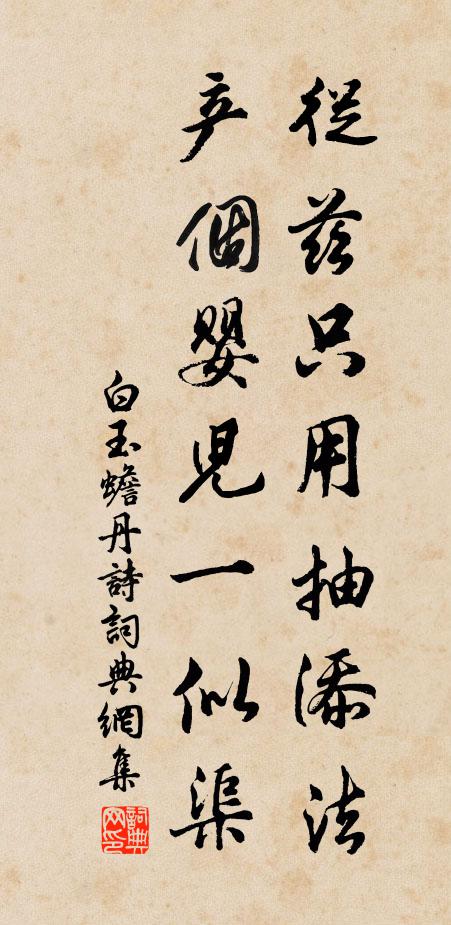 從茲只用抽添法
产個嬰兒一似渠
白玉蟾丹詩詞典網集
詞典网印